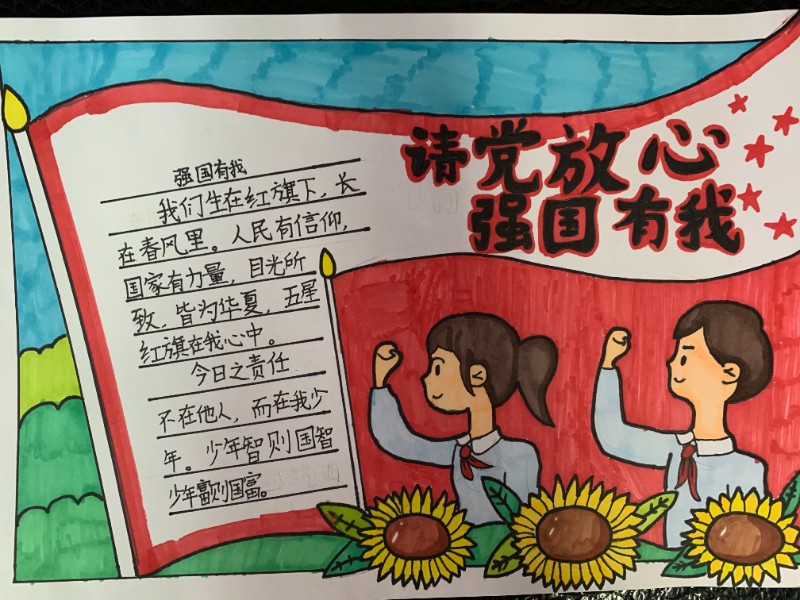 请党放心
强国有我
强国有我
我们生在红旗下，长
在春风里。人民有信仰，
国家有力量，目光所
致，皆为华夏，五星
红旗在我心中。
今日之责任
不在他人，而在我少
年。少年智则国智
少年富则国富。